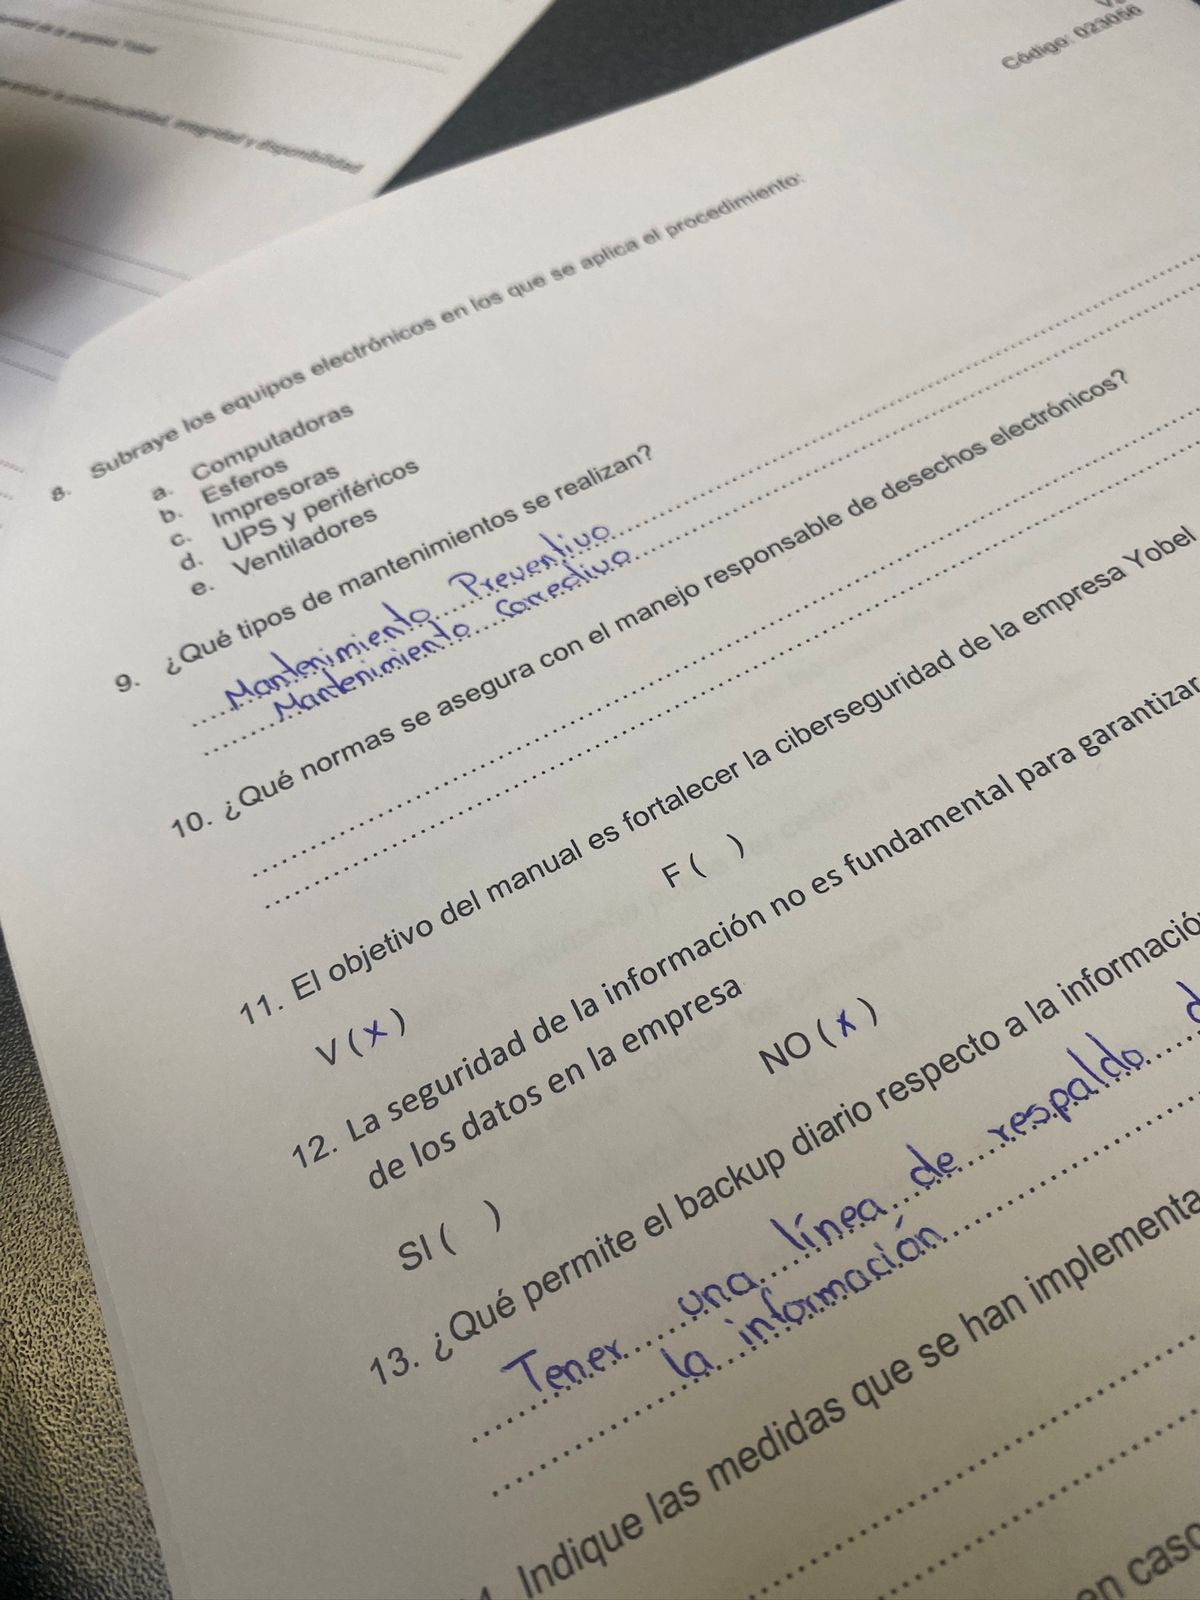 Código: 023056
confidencialidad, integridad y disponibilidad
8. Subraye los equipos electrónicos en los que se aplica el procedimiento:
a. Computadoras
b. Esferos
c. Impresoras
d. UPS y periféricos
e. Ventiladores
9. ¿Qué tipos de mantenimientos se realizan?
Mantenimiento Preventivo
Mantenimiento Correctivo
10. ¿Qué normas se asegura con el manejo responsable de desechos electrónicos?
11. El objetivo del manual es fortalecer la ciberseguridad de la empresa Yobel
V ( x ) F ( )
12. La seguridad de la información no es fundamental para garantizar
de los datos en la empresa
SI ( ) NO ( x )
13. ¿Qué permite el backup diario respecto a la informació
Tener una línea de respaldo d
la información
Indique las medidas que se han implementa
en caso